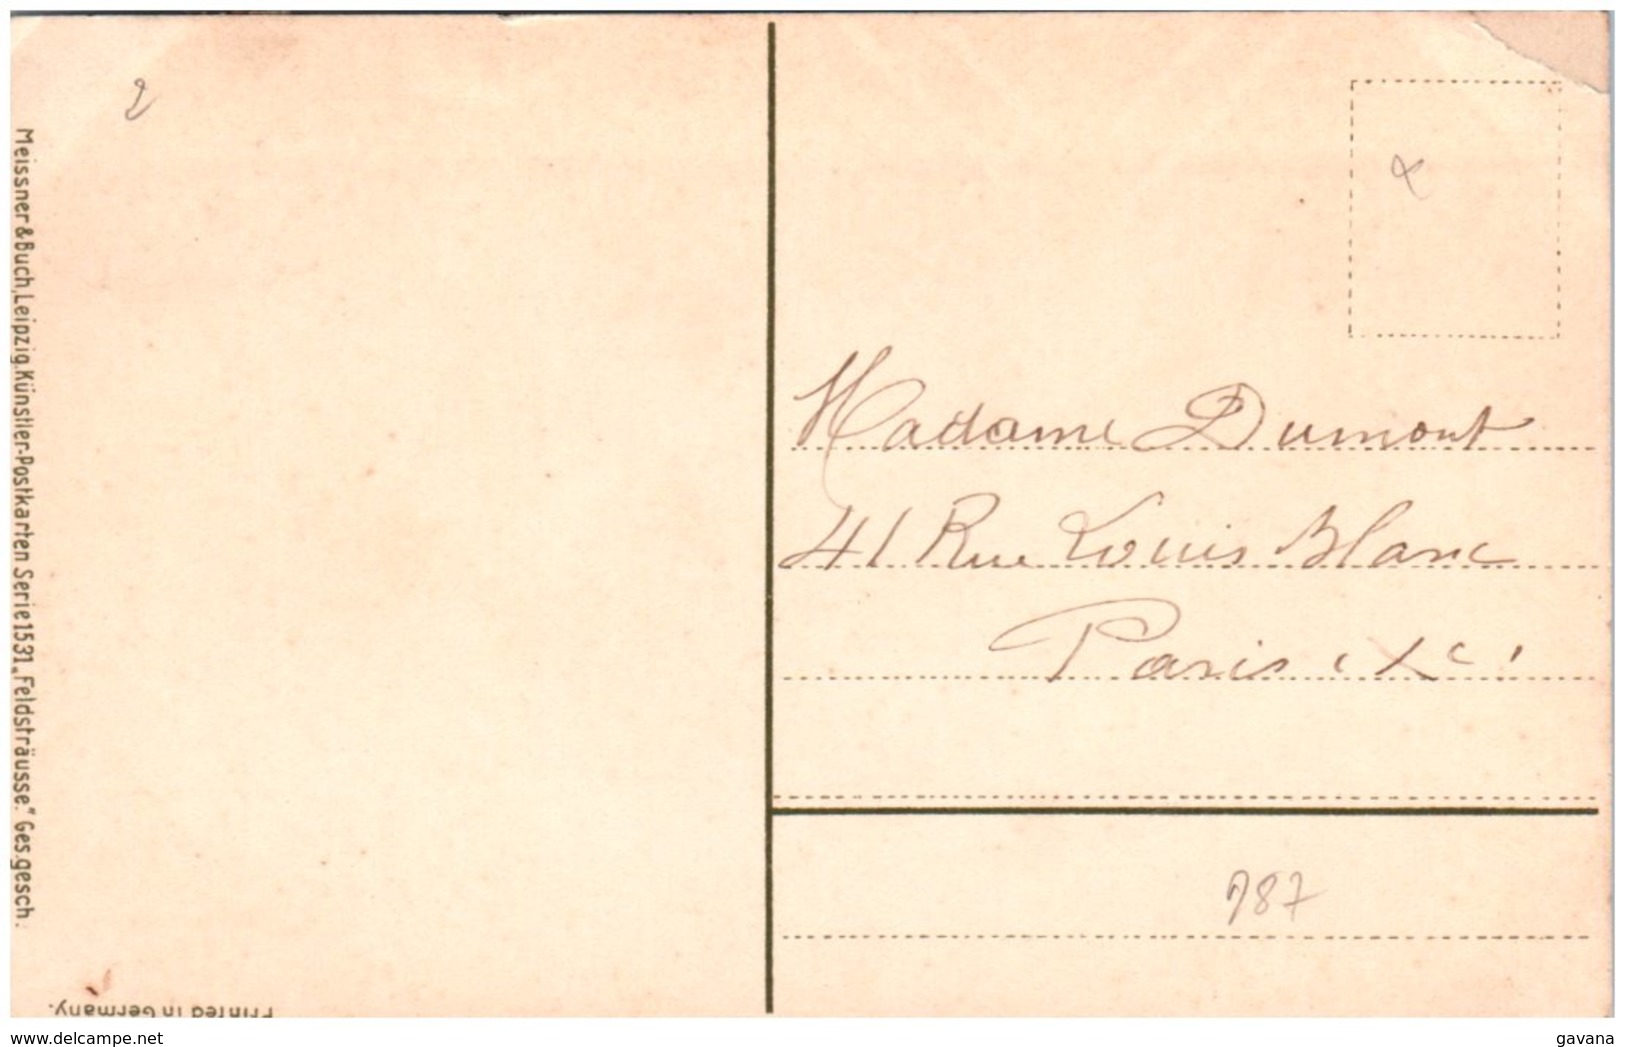 2
Meissner & Buch, Leipzig. Künstler-Postkarten Serie 1531 „Feldsträusse.“ Ges. gesch.
Madame Dumont
41 Rue Louis Blanc
Paris (Xe)
987
Printed in Germany.
www.delcampe.net
gavana